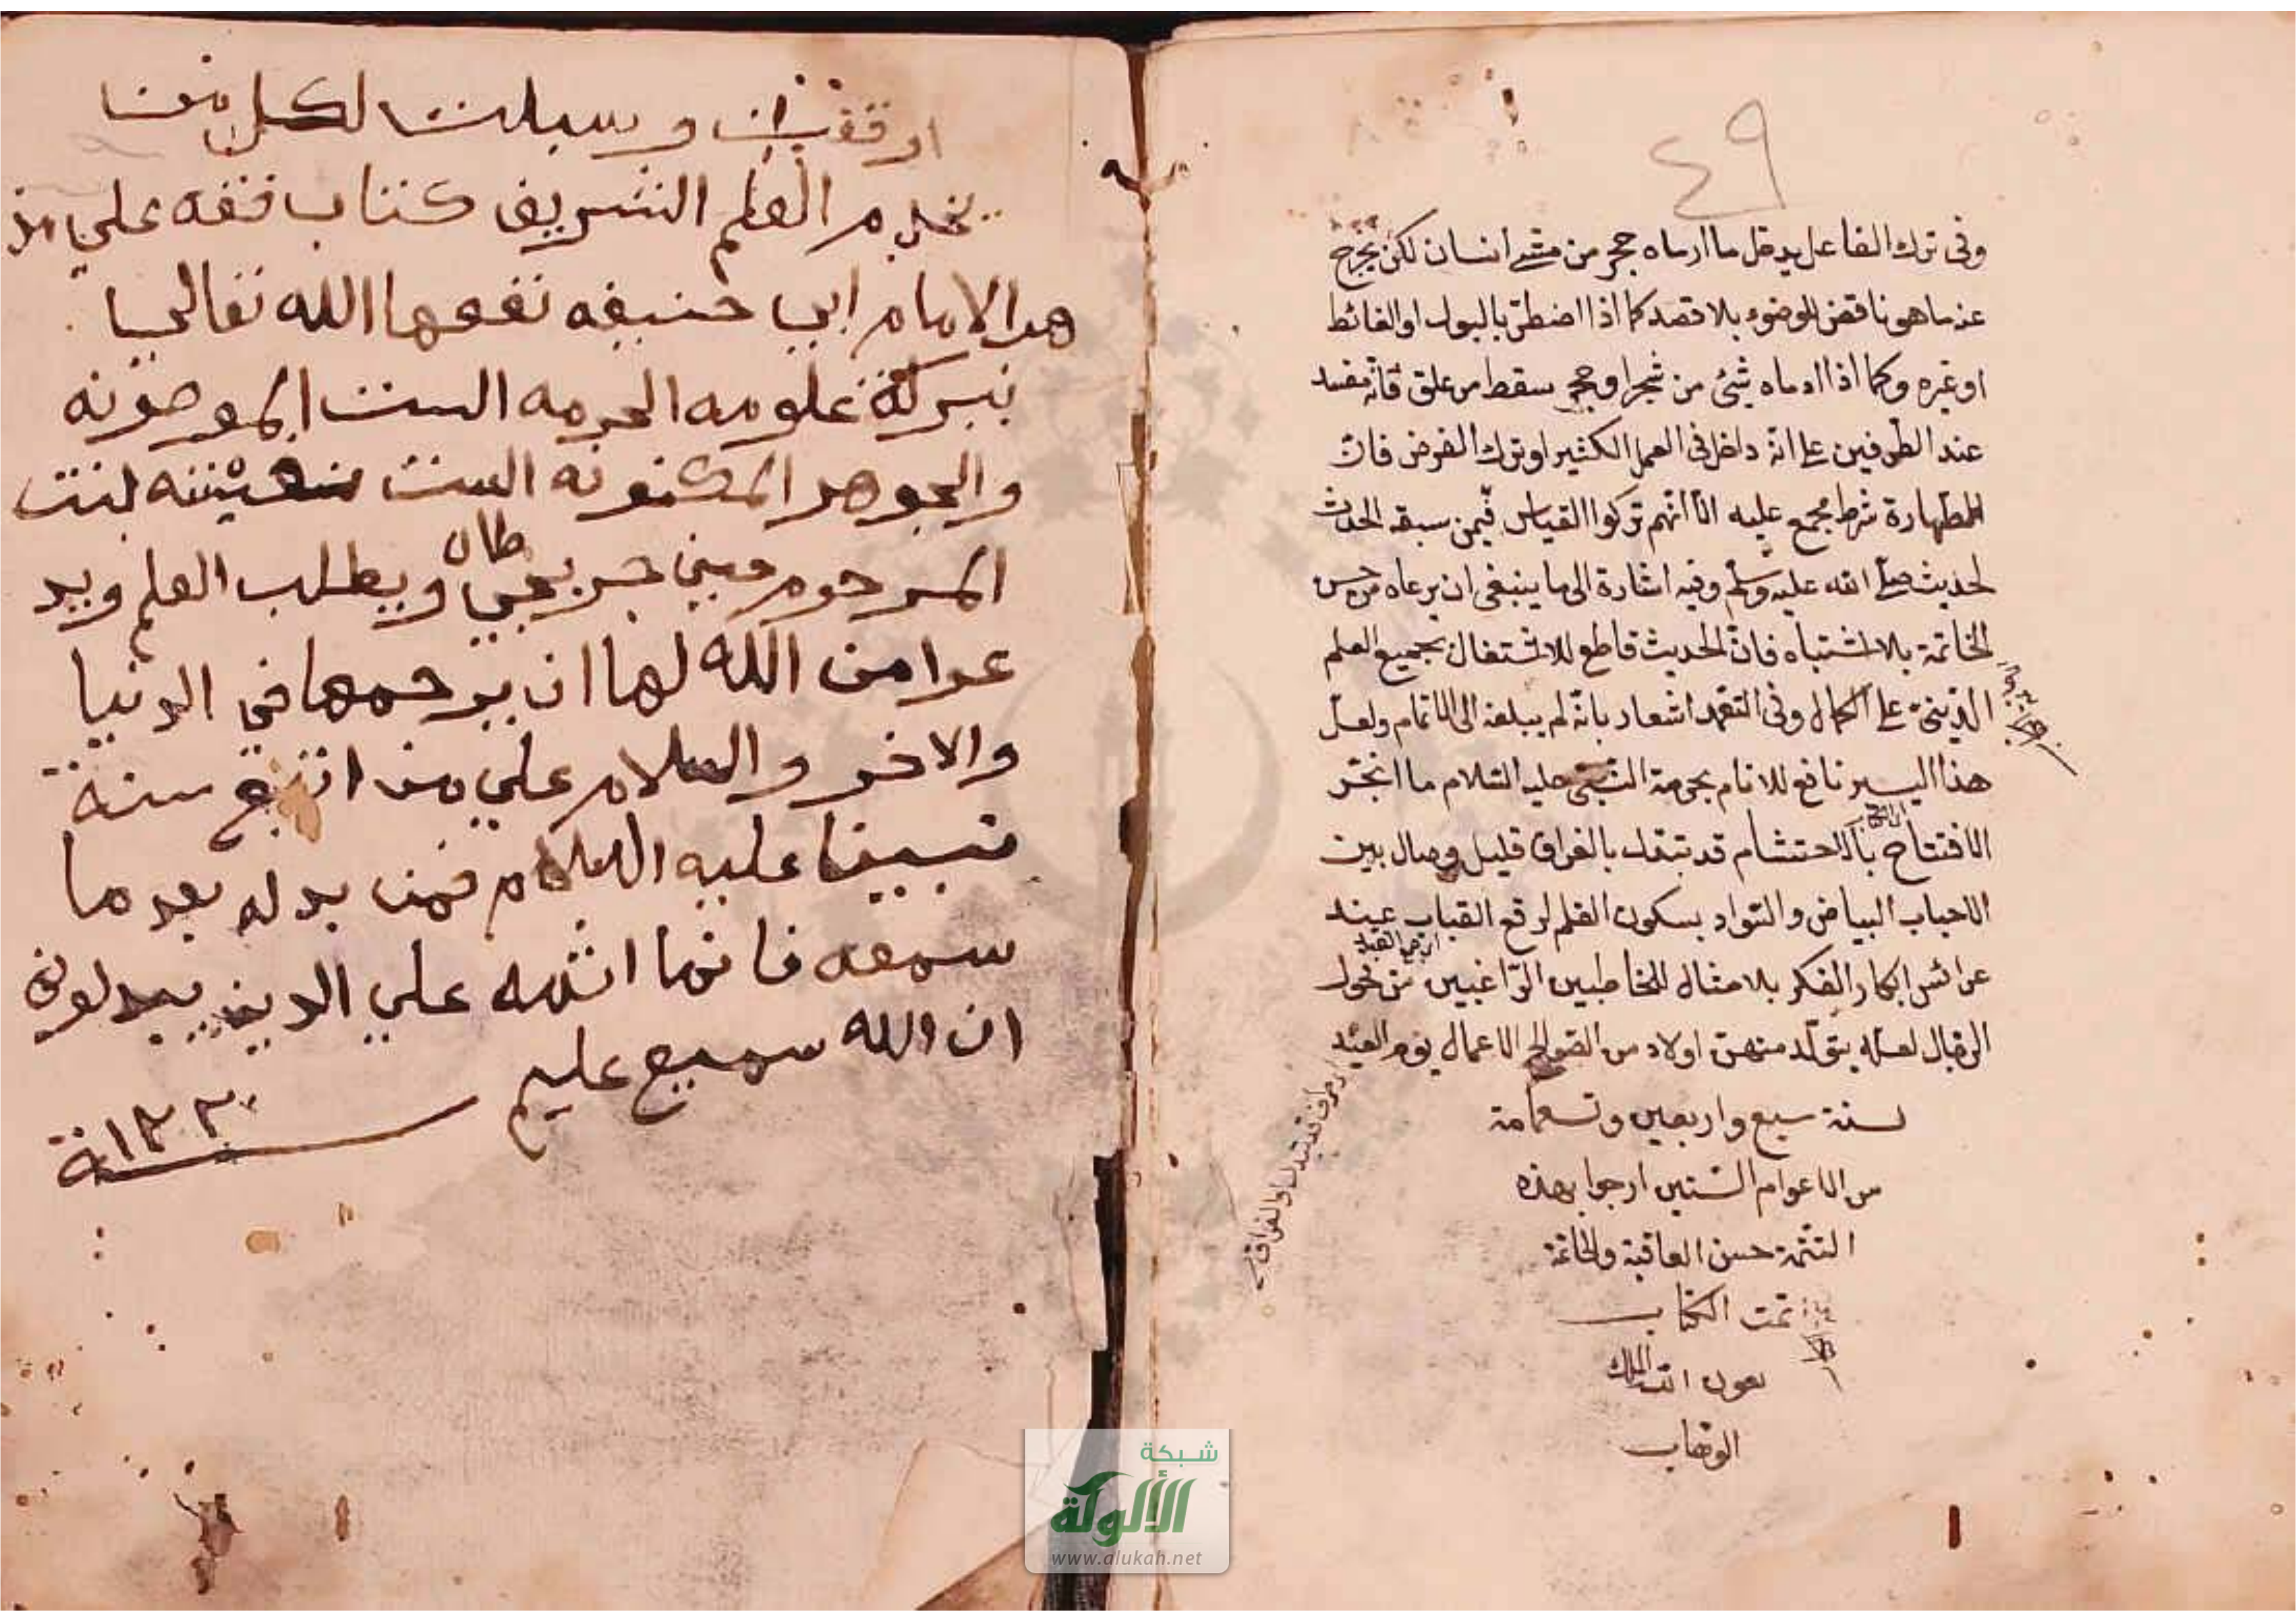 ٤٩
وفى ترك الفاعل يدخل ما ارماه حجر من مشى انسان لكن يخرج
عنه ما هو ناقض الوضوء بلا قصد كما اذا اضطر بالبول او الغائط
او غيره وكما اذا ادماه شئ من شجر او حجر سقط من علق فانه مفسد
عند الطرفين على انه داخل فى العمل الكثير او ترك الفرض فان
الطهارة شرط مجمع عليه الا انهم تركوا القياس فيمن سبقه الحدث
لحديث صلى الله عليه وسلم وفيه اشارة الى ما ينبغى ان يرعاه من حسن
الخاتمة بلا اشتباه فان الحديث قاطع للاشتغال بجميع العلم
على الكمال وفى التعمد اشعار بانه لم يبلغه الى الاتمام ولعل
هذا اليسير نافع للانام بحرمة النبى عليه السلام ما انجر
الافتتاح بالاحتشام قد تبدل بالفراق قليل وصال بين
الاحباب البياض والسواد بسكون القلم لرفع القباب عند
عرائس ابكار الفكر بلا مثال للخاطبين الراغبين من فحول
الرجال لعله يتولد منهن اولاد من الصوالح الاعمال يوم العيد
لسنة سبع واربعين وتسعمامة
من الاعوام السنين ارجوا بهذه
التتمة حسن العاقبة والخاتمة
تمت الكتاب
بعون الله الملك
الوهاب
اوقفت وسبلت لكل من
يخدم العلم الشريف كتاب فقه على مذ
هب الامام ابى حنيفه نفعها الله تعالى
ببركة علومه الحرمه الست المصونه
والجوهر المكنونه الست بنت
المرحوم حسين جربجى طال ويطلب العلم ويد
عوا من الله لها ان يرحمها فى الدنيا
والاخر والسلام على من اتبع سنة
نبينا عليه السلام فمن بدله بعد ما
سمعه فانما اثمه على الدين يبدلونه
ان الله سميع عليم
سنة ١٢٣٠
شبكة
الألوكة
www.alukah.net